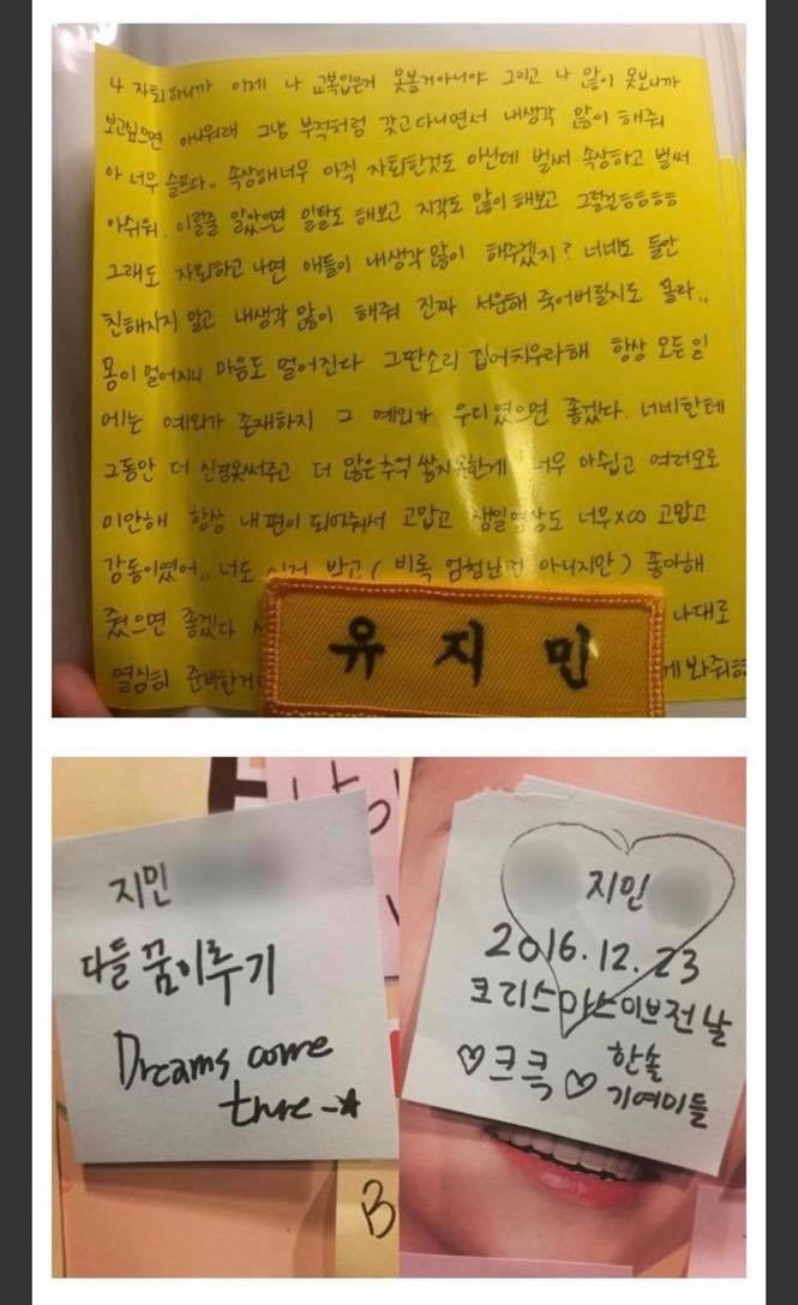 나 자퇴하니까 이제 나 교복입은거 못볼거아니야 그리고 나 많이 못보니까
보고싶으면 아쉬워해 그냥 부적처럼 갖고다니면서 내생각 많이 해줘
아 너무 슬프다.. 속상해너무 아직 자퇴한것도 아닌데 벌써 속상하고 벌써
아쉬워. 이럴줄 알았으면 일탈도 해보고 지각도 많이 해보고 그럴걸ㅎㅎㅎㅎ
그래도 자퇴하고 나면 애들이 내생각 많이 해주겠지? 너네도 둘만
친해지지 말고 내생각 많이 해줘 진짜 서운해 죽어버릴지도 몰라..
몸이 멀어지니 마음도 멀어진다 그딴소리 집어치우라해 항상 모든일
에는 예외가 존재하지 그 예외가 우리였으면 좋겠다. 너네한테
그동안 더 신경못써주고 더 많은추억 쌓지못한게 너무 아쉽고 여러모로
미안해 항상 내편이 되어줘서 고맙고 생일영상도 너무xco 고맙고
감동이였어.. 너도 이거 받고 (비록 엄청난건 아니지만) 좋아해
줬으면 좋겠다 나대로
열심히 준비한거 게 봐줘ㅎㅎ
유지민
지민
다들 꿈이루기
Dreams come
ture -☆
지민
2016.12.23
크리스마스이브전날
♡크큭♡ 한솔
기여미들
B